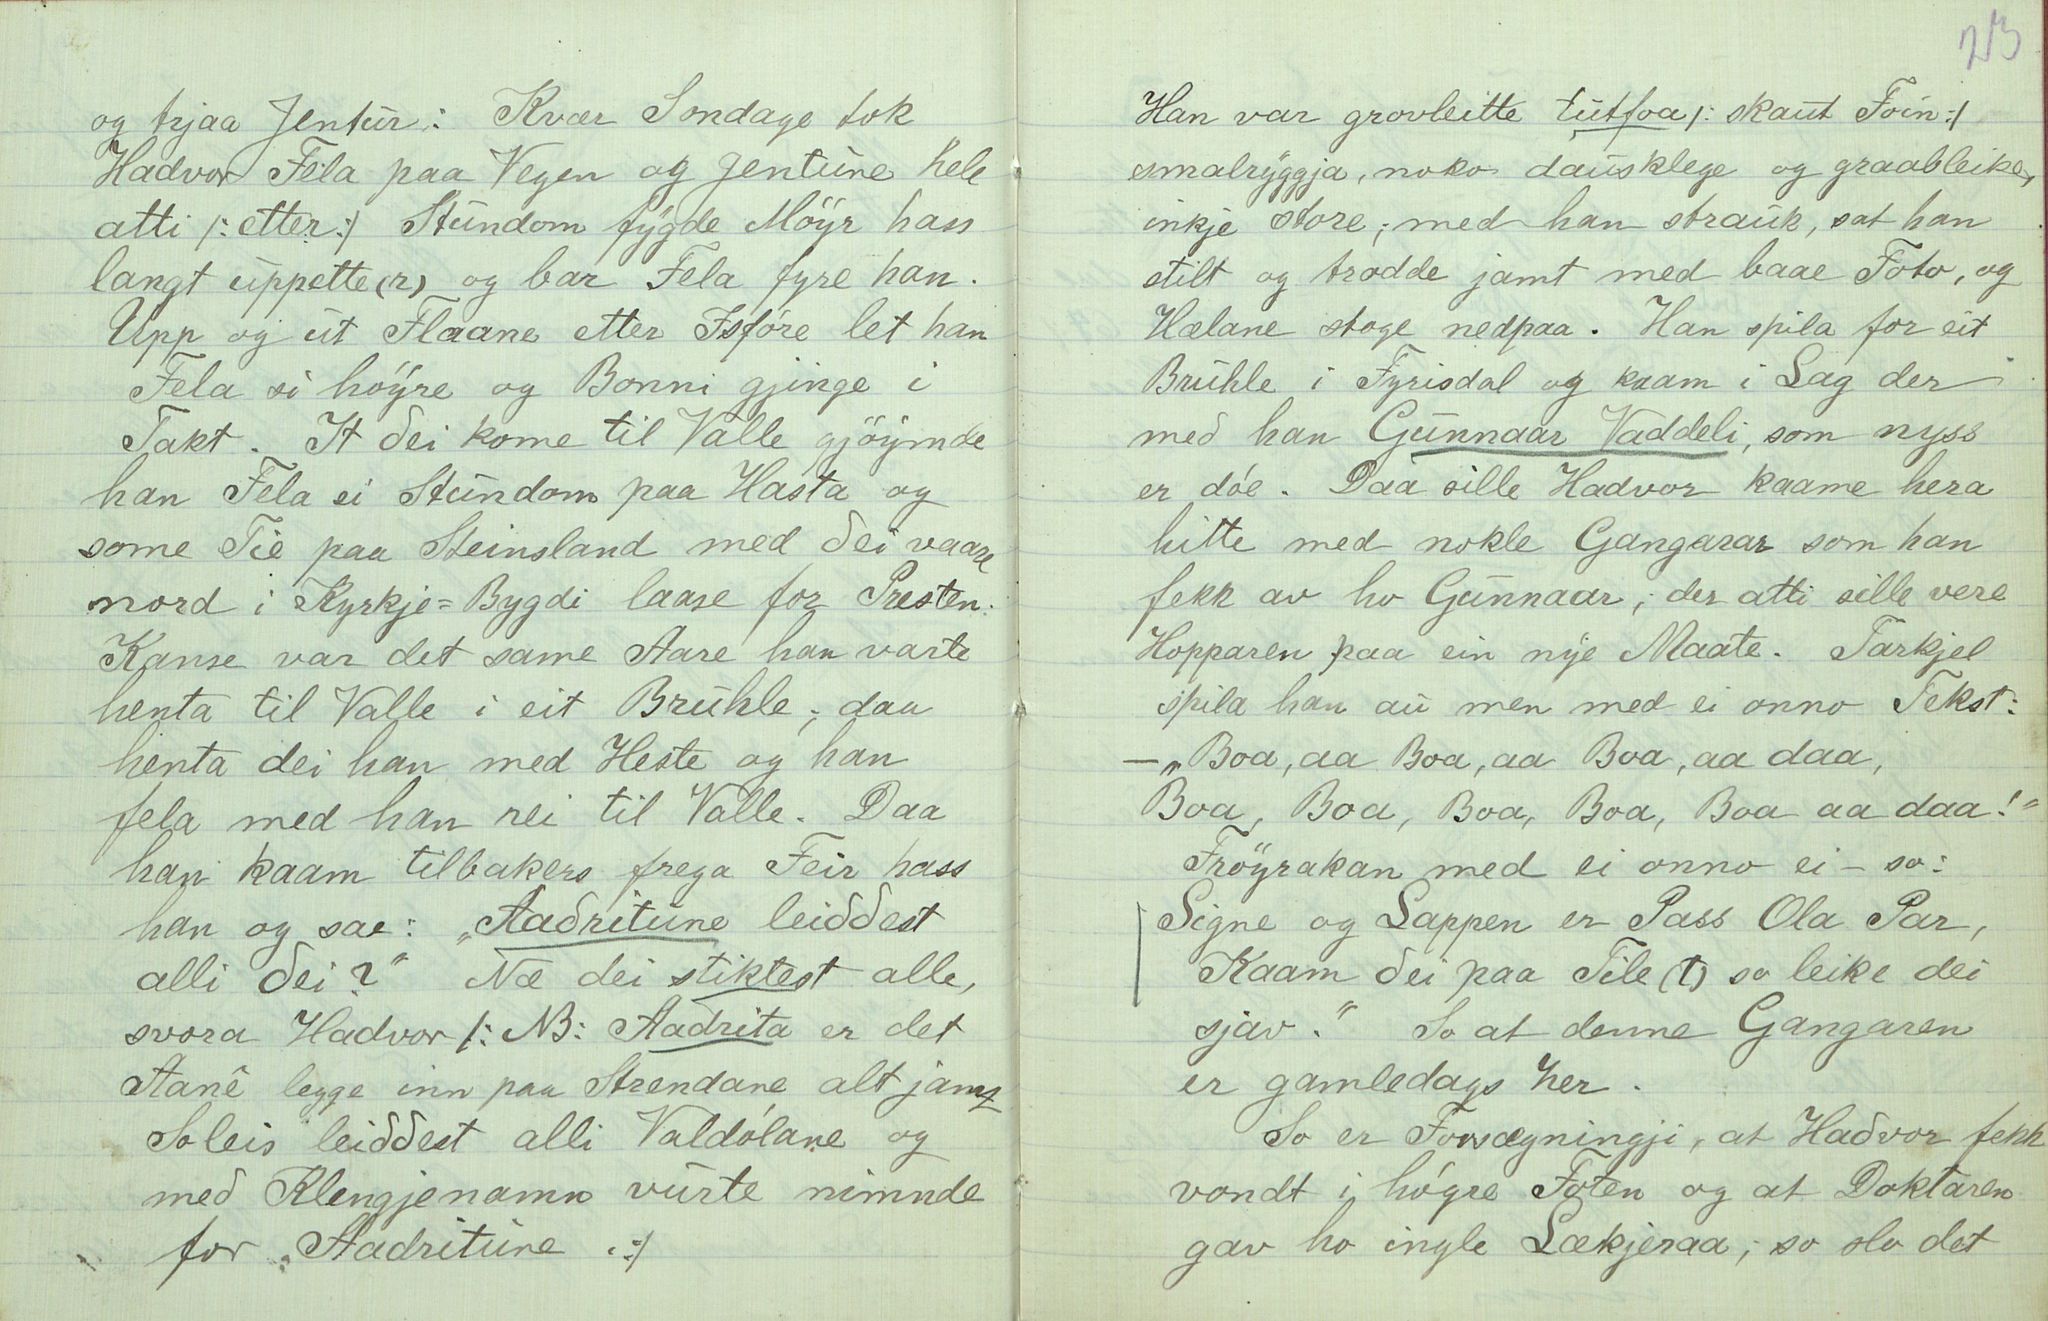 og trjaa Jentur: Kvær Sondage tok
Hadvor Fela paa Vegen og Jentune hele
atti /: etter :/ Stundom fygde Möyr hass
langt uppette(r) og bar Fela fyre han.
Upp og ut Flaane etter Isföre let han
Fela si höyre og Bonni gjinge i
Takt. It dei kome til Valle gjöymde
han Fela ei Stundom paa Hasta og
some Tie paa Steinsland med ðei vaare
nord i Kyrkje=Bygdi laase for Presten.
Kanse var det same Aare han varte
henta til Valle i eit Bruhle; daa
henta dei han med Heste og han
fela med han rei til Valle. Daa
han kaam tilbakers frega Feir hass
han og sae: „Aaðritune leiððest
alli ðei?“ Næ dei stiktest alle,
svora Hadvor /: NB: Aadrita er det
Aanê legge inn paa Strendane alt jamt
Soleis leiððest alli Valdólane og
með Klengjenamn vurte nimnde
for Aadritune. :/
23
Han var grovleitte tutfoa /: skaut Foin :/
smalryggja, noko dausklege og graableike,
inkje store; med han strauk, sat han
stilt og trodde jamt med baae Foto, og
Hælane stoge nedpaa. Han spila for eit
Bruhle i Fyrisdal og kaam i Lag der
með han Gunnaar Vaddeli, som nyss
er dóe. Daa sille Hadvor kaame hera
hitte med nokle Gangarar som han
fekk av ho Gunnaar; der atti sille vere
Hopparen paa ein nye Maate. Tarkjel
spila han au men med ei onno Tekst:
– „Boa, aa Boa, aa Boa, aa daa,
Boa, Boa, Boa, Boa, Boa aa daa!“
Fröyrakan med ei onno ei – so:
Signe og Lappen er Pass Ola Par,
Kaam ðei paa Tile(t) so leike dei
sjav.“ So at denne Gangaren
er gamledags her.
So er Forsægningji, at Haðvor fekk
vondt i hógre Foten og at Doktaren
gav ho ingle Lækjeraa; so slo det